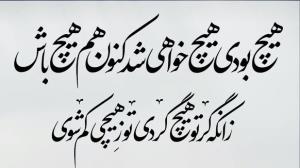 هیچ بودی هیچ خواهی شد کنون هم هیچ باش
زانکه گر تو هیچ گردی تو ز هیچی کم شوی